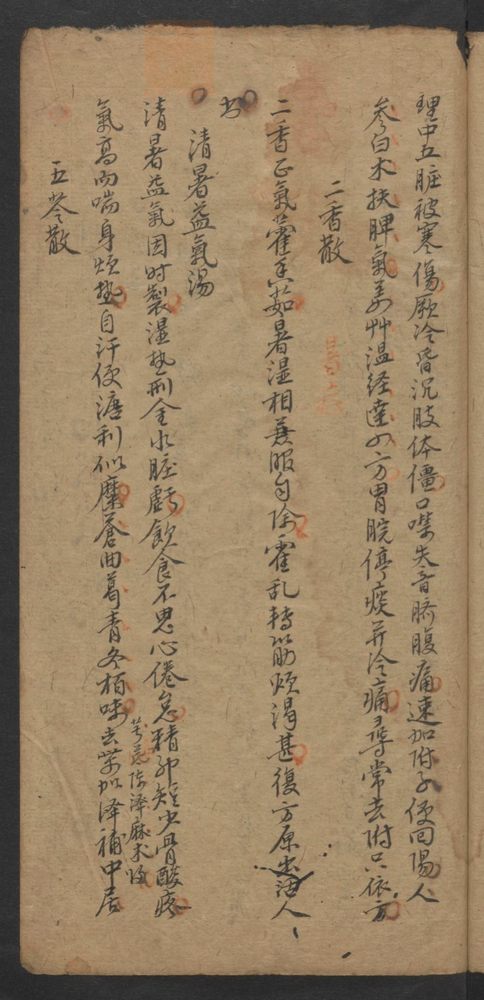 理中五脏被寒傷厥冷昏沉肢体僵口噤失音臍腹痛速加附子便回陽人
参白术扶脾氣姜艸温经達四方胃脘停痰并冷痛尋常去附只依方
二香散
二香正氣藿香茹暑湿相兼服自除霍乱轉筋烦渴甚復方原出活人
书
清暑益氣湯
清暑益氣因时製湿热刑金水脏虧飲食不思心倦怠精神短少骨酸疼
氣高而喘身烦热自汗便溏利似糜蒼曲葛青冬柏味去柴加泽補中居
芪陈泽麻术
五苓散